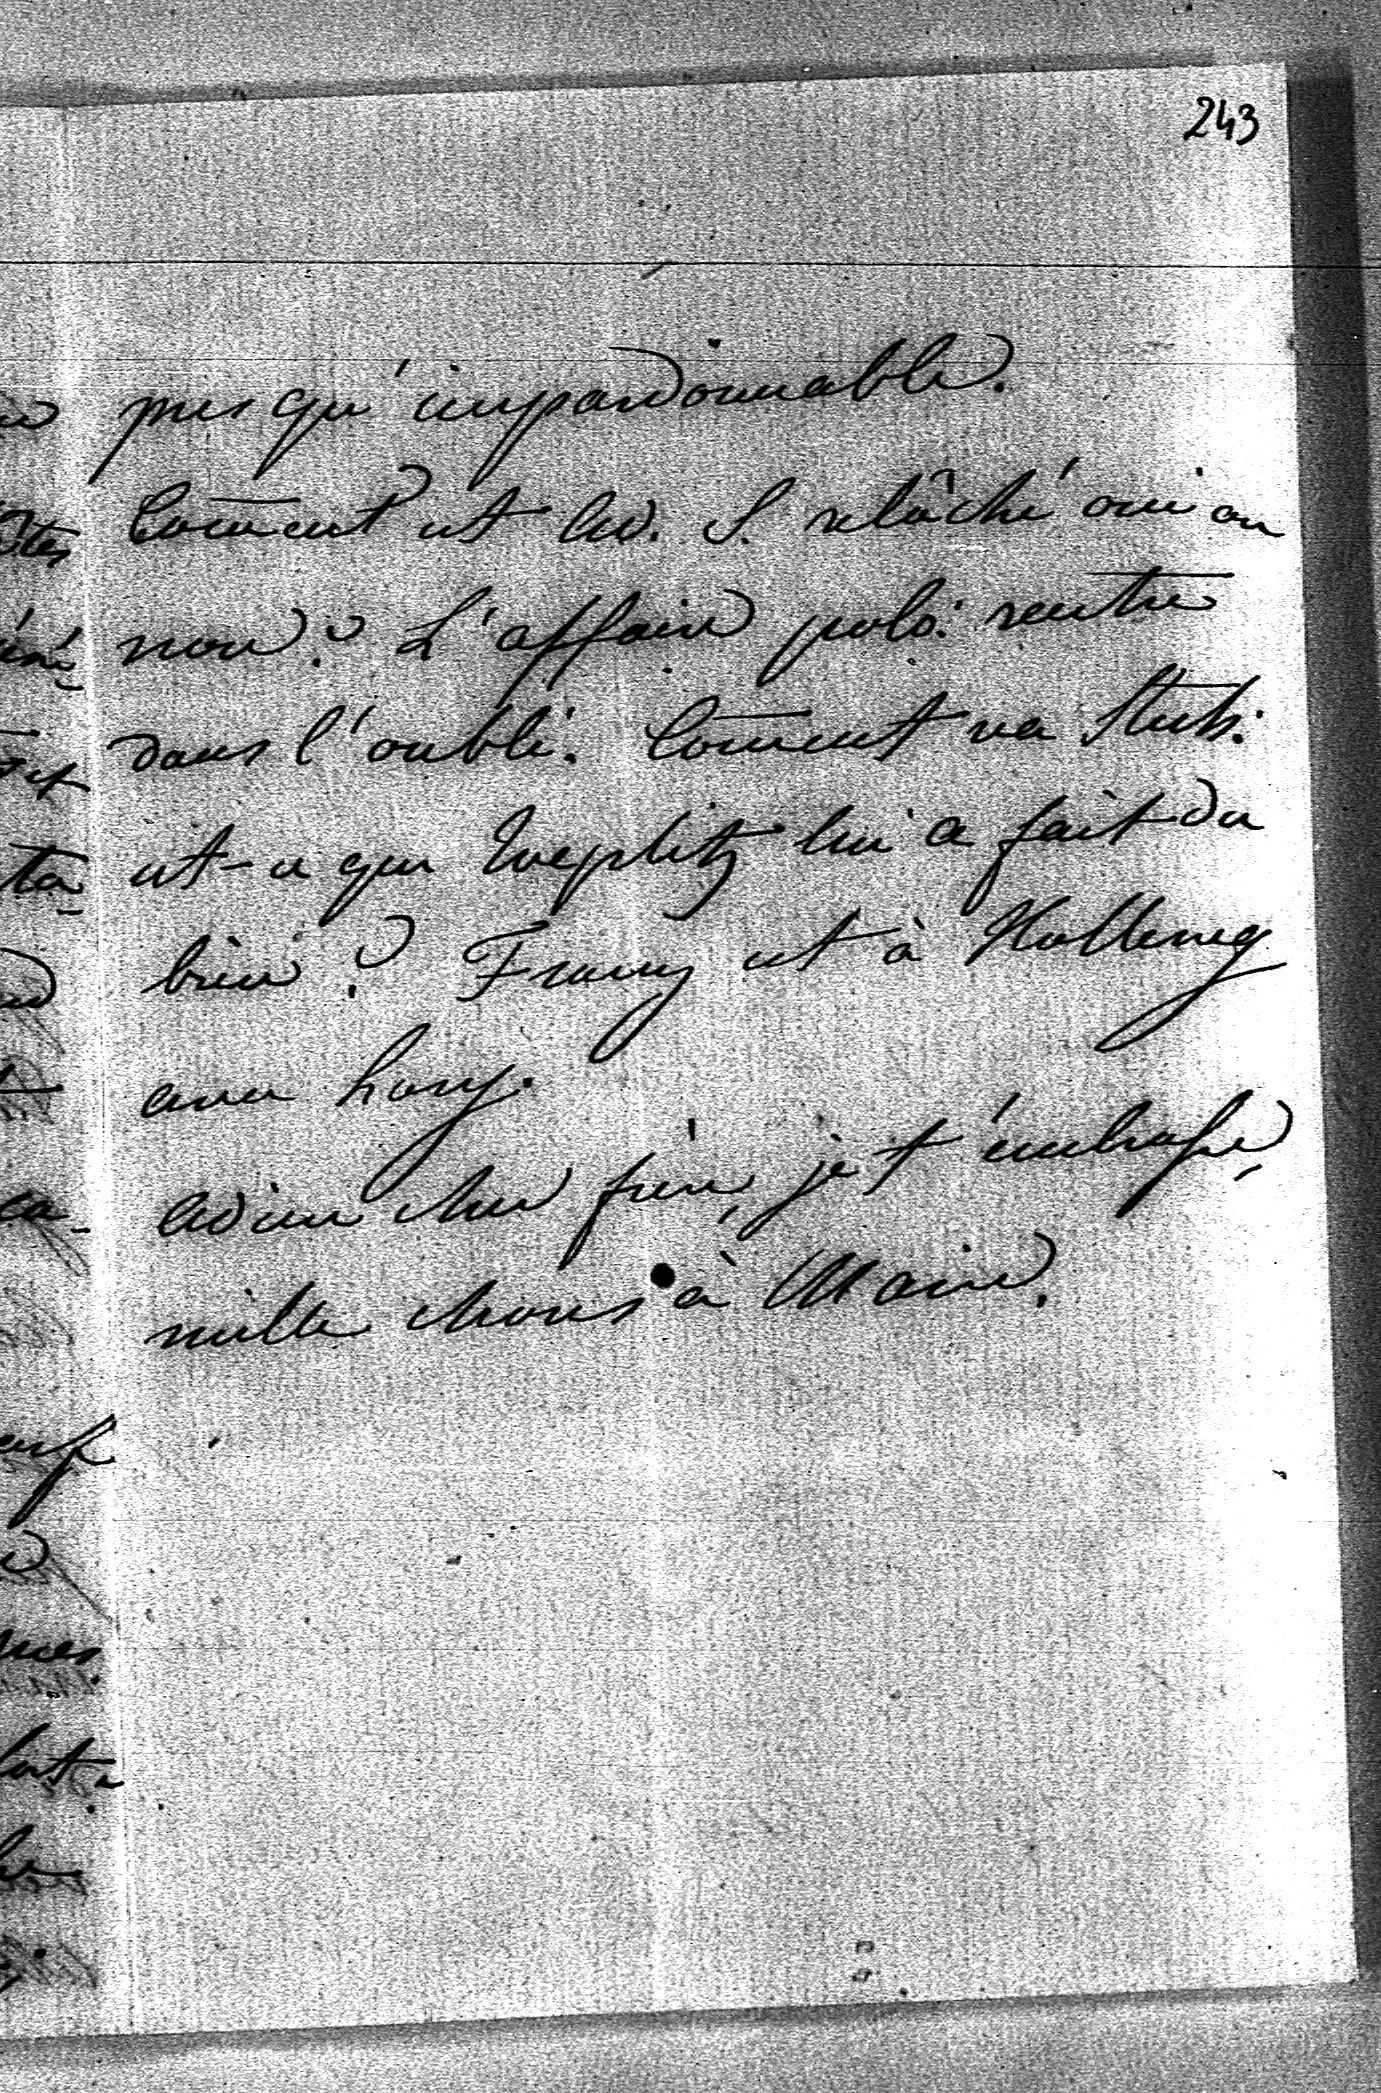 243
presqu'impardonnable.
Com̅ent est Ad. S. relâché oui ou
non? L'affaire polo. rentre
dans l'oubli. Com̅ent va
est-ce que Toeplitz lui a fait du
bien? Franz est à Holleneg
avec Lory.
Adieu cher frère, je t'embrasse,
mille choses à Marie.